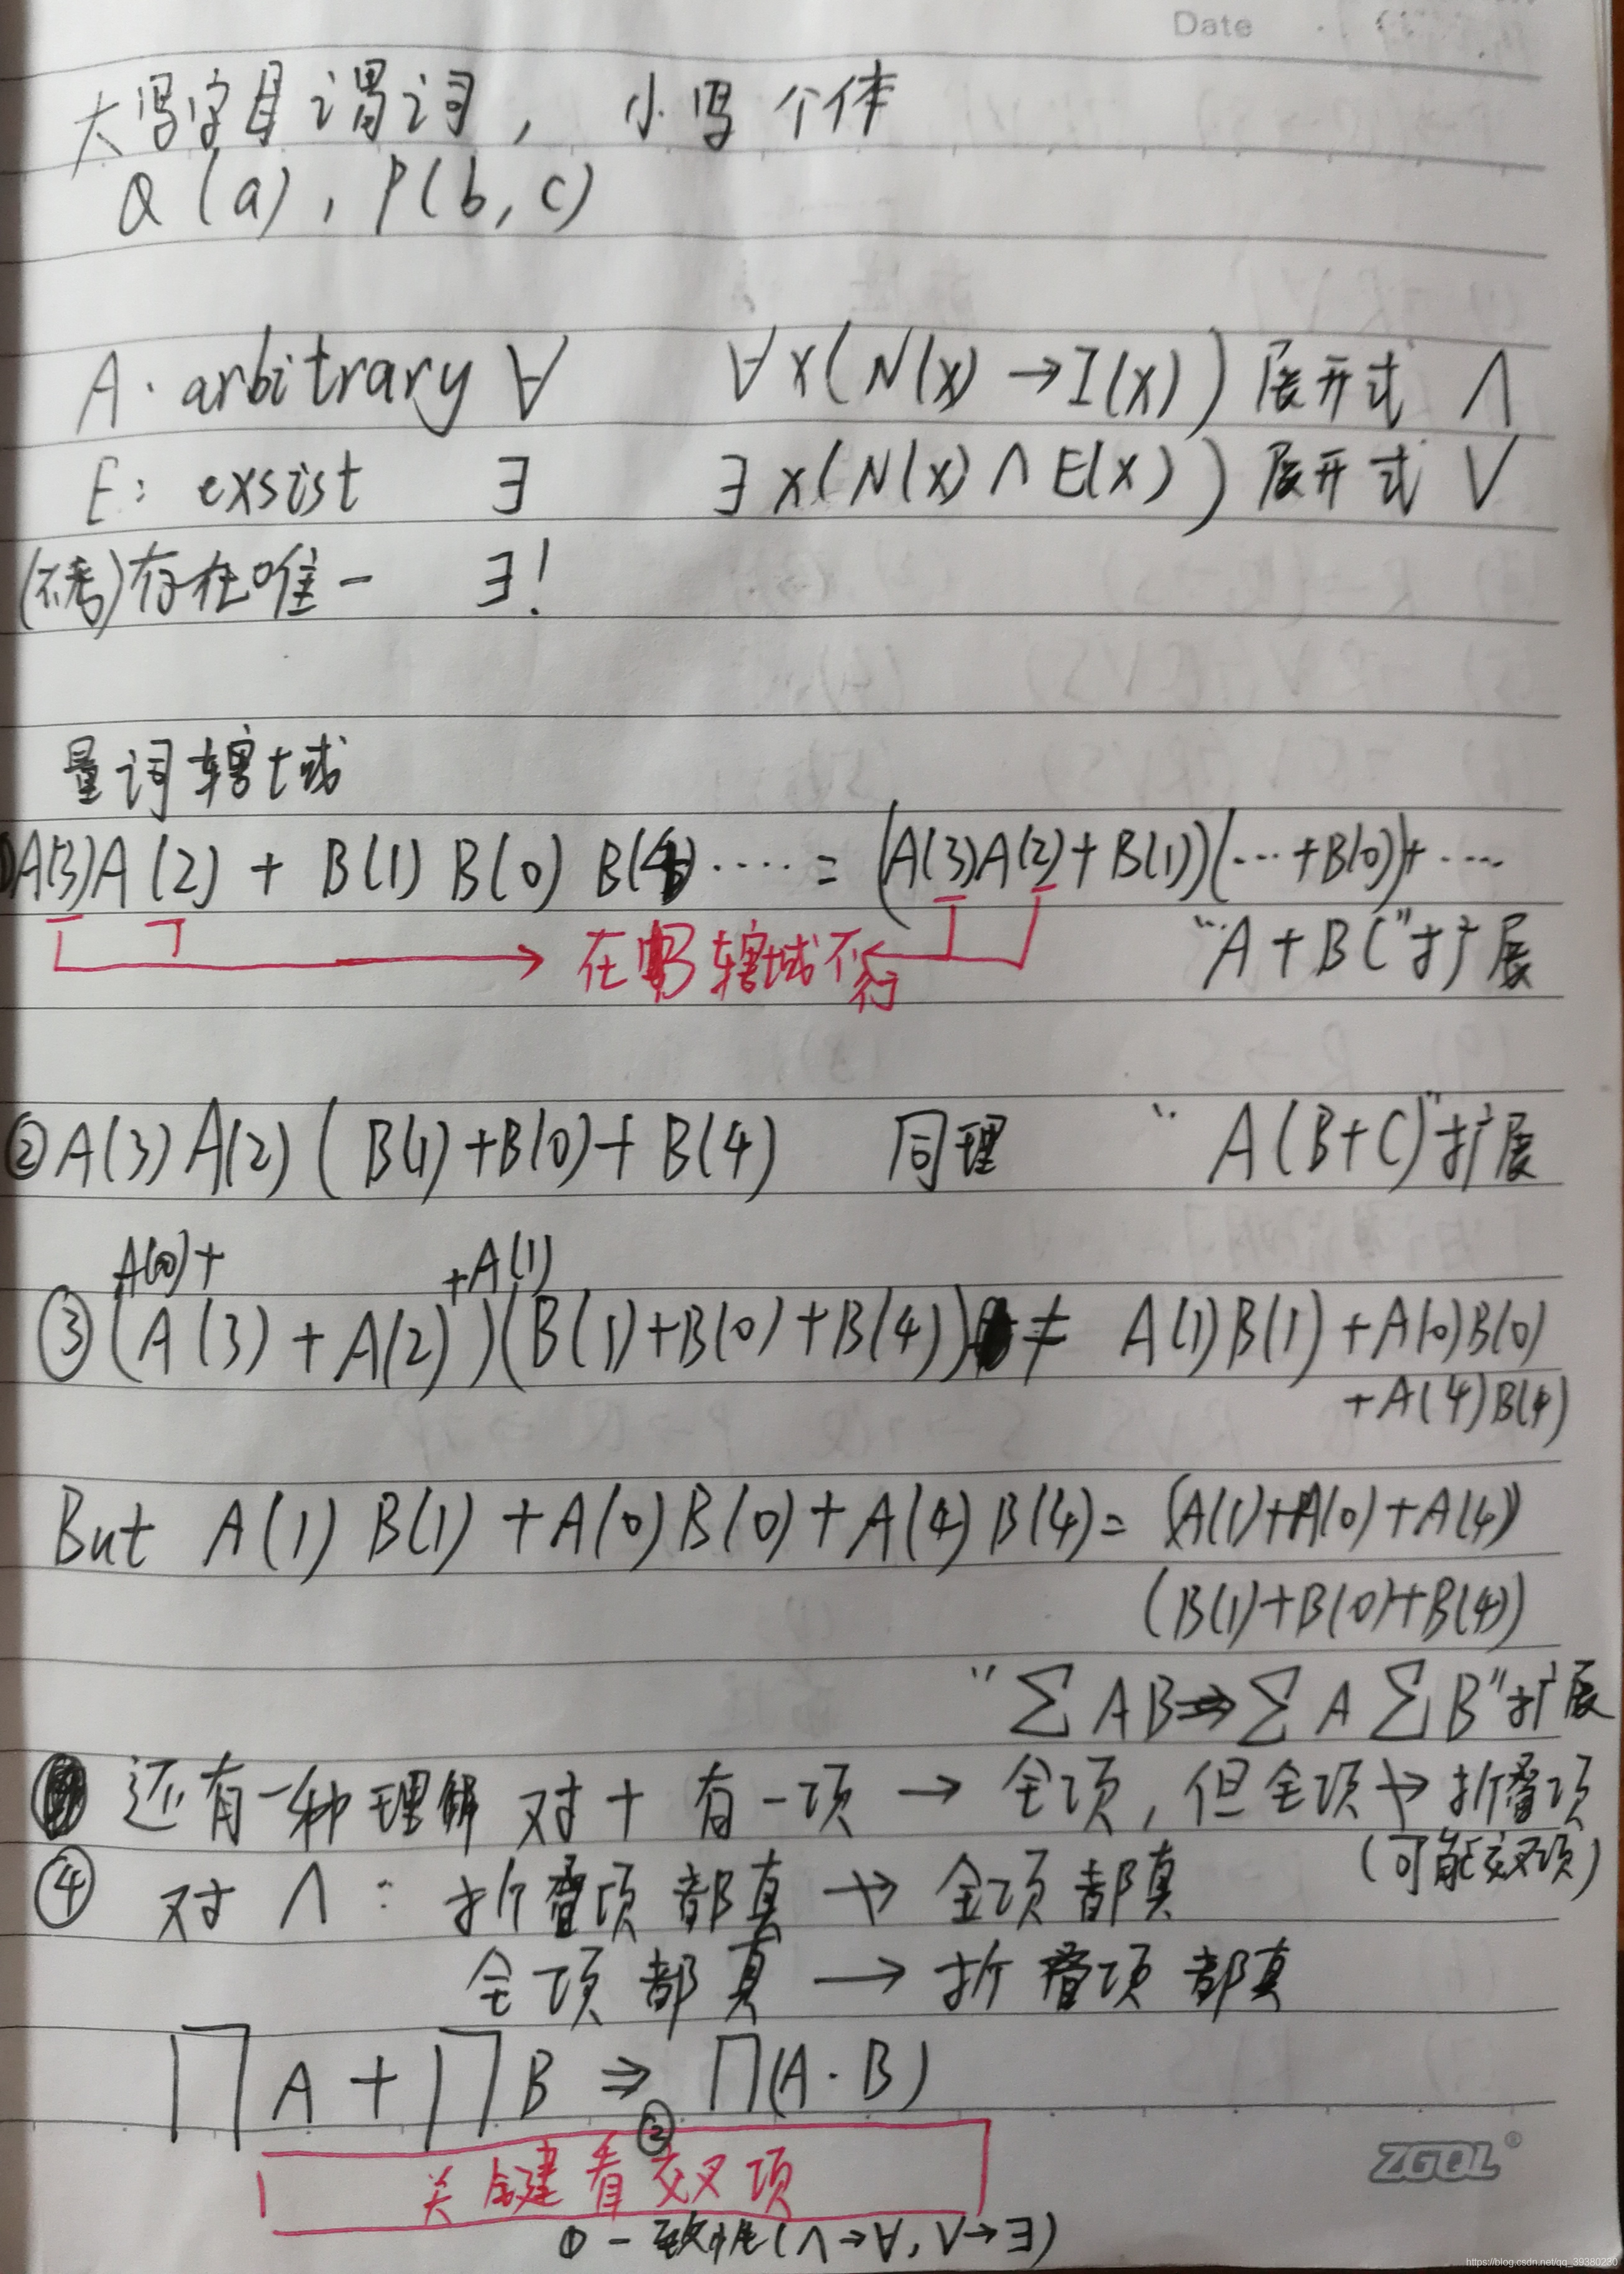 Date
大写字母谓词， 小写个体
Q(a), P(b,c)
A. arbitrary ∀ ∀x(N(x)→I(x)) 展开式 ∧
E: exsist ∃ ∃x(N(x)∧E(x)) 展开式 ∨
(不考)存在唯一 ∃!
量词辖域
①A(3)A(2) + B(1) B(0) B(4)····· = (A(3)A(2)+B(1))(···+B(0))+····
在 辖域不行
"A+BC"扩展
②A(3)A(2)(B(1)+B(0)+B(4) 同理 "A(B+C)"扩展
A(0)+ +A(1)
③(A(3)+A(2))(B(1)+B(0)+B(4)) ≠ A(1)B(1)+A(0)B(0)
+A(4)B(4)
But A(1)B(1)+A(0)B(0)+A(4)B(4)= (A(1)+A(0)+A(4))
(B(1)+B(0)+B(4))
"∑AB⇒∑A∑B"扩展
还有一种理解 对+有一项→全项，但全项↛折叠项
(可能交叉项)
④ 对∧: 折叠项都真↛全项都真
全项都真→折叠项都真
∏A+∏B⇒∏(A·B)
②
关键看交叉项
①一致性(∧→∀,∨→∃)
ZGQL®
https://blog.csdn.net/qq_39380230